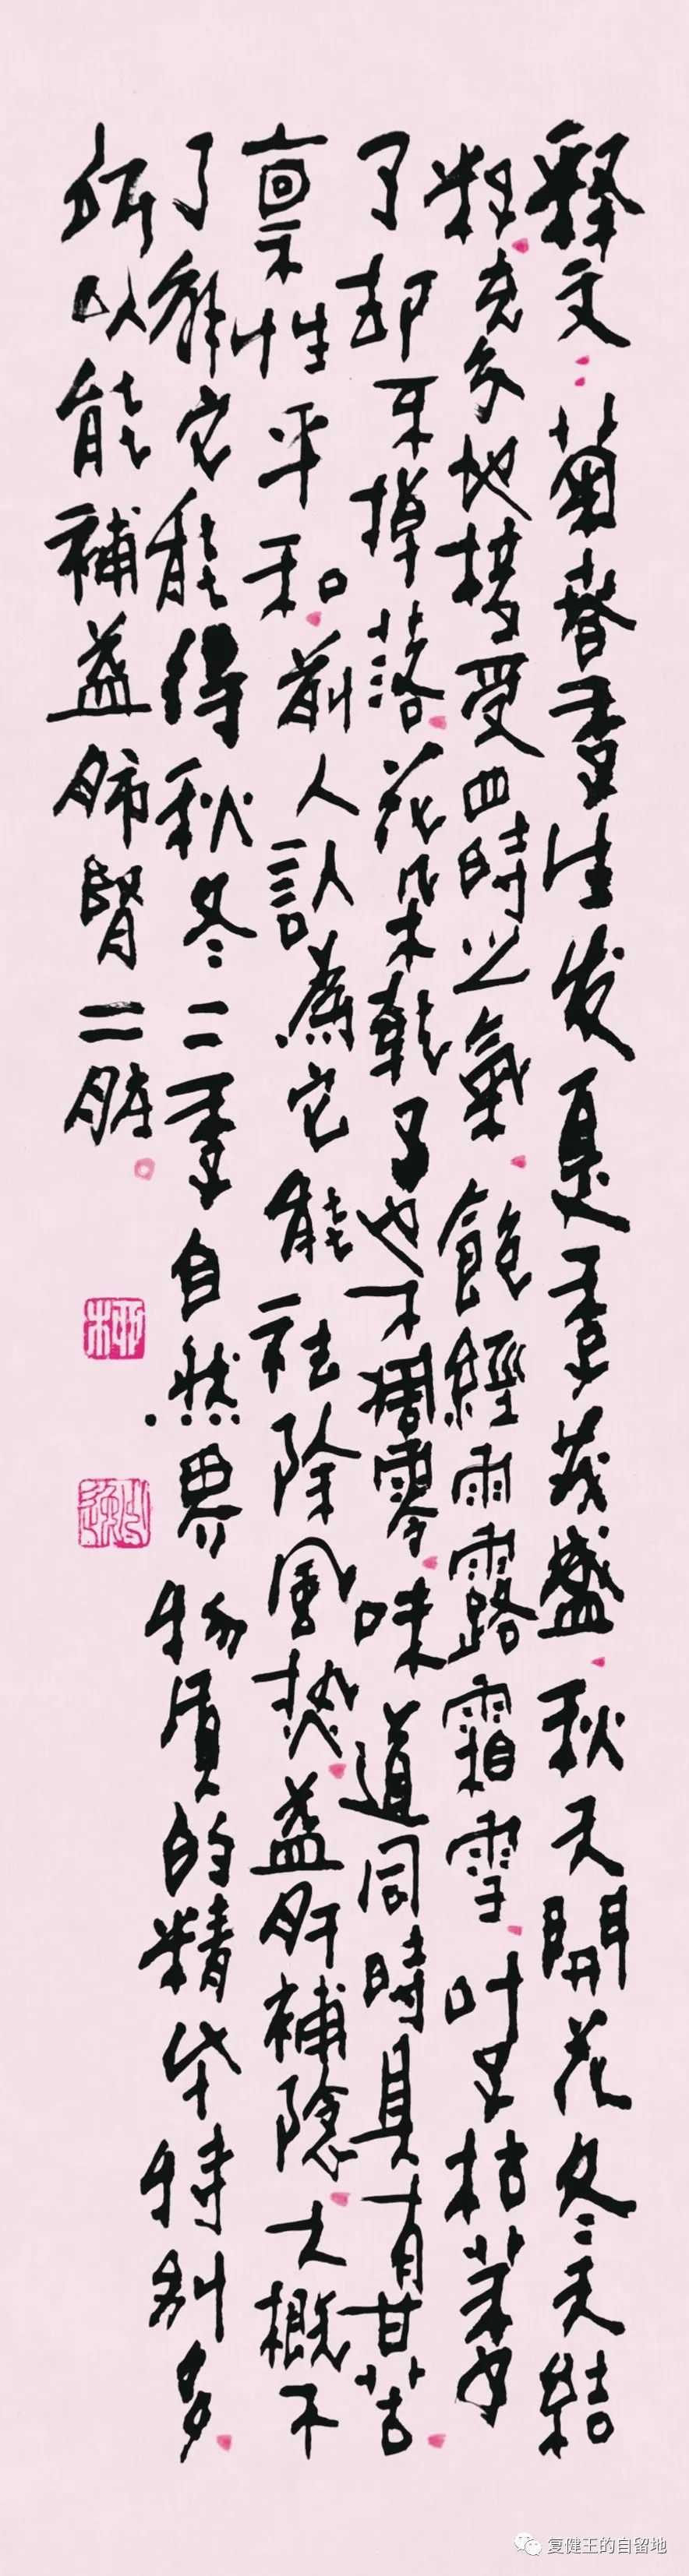 释文：菊春季生发夏季茂盛，秋天開花冬天結
籽，充分地接受四時之氣，飽經雨露霜雪，叶子枯萎
了却不掉落，花朵乾了也不凋零，味道同時具有甘苦，
禀性平和，前人認為它能祛除風热，益肝補陰，大概不
了解它能得秋冬二季自然界物质的精华特别多，
所以能補益肺腎二脏。
复健王的自留地